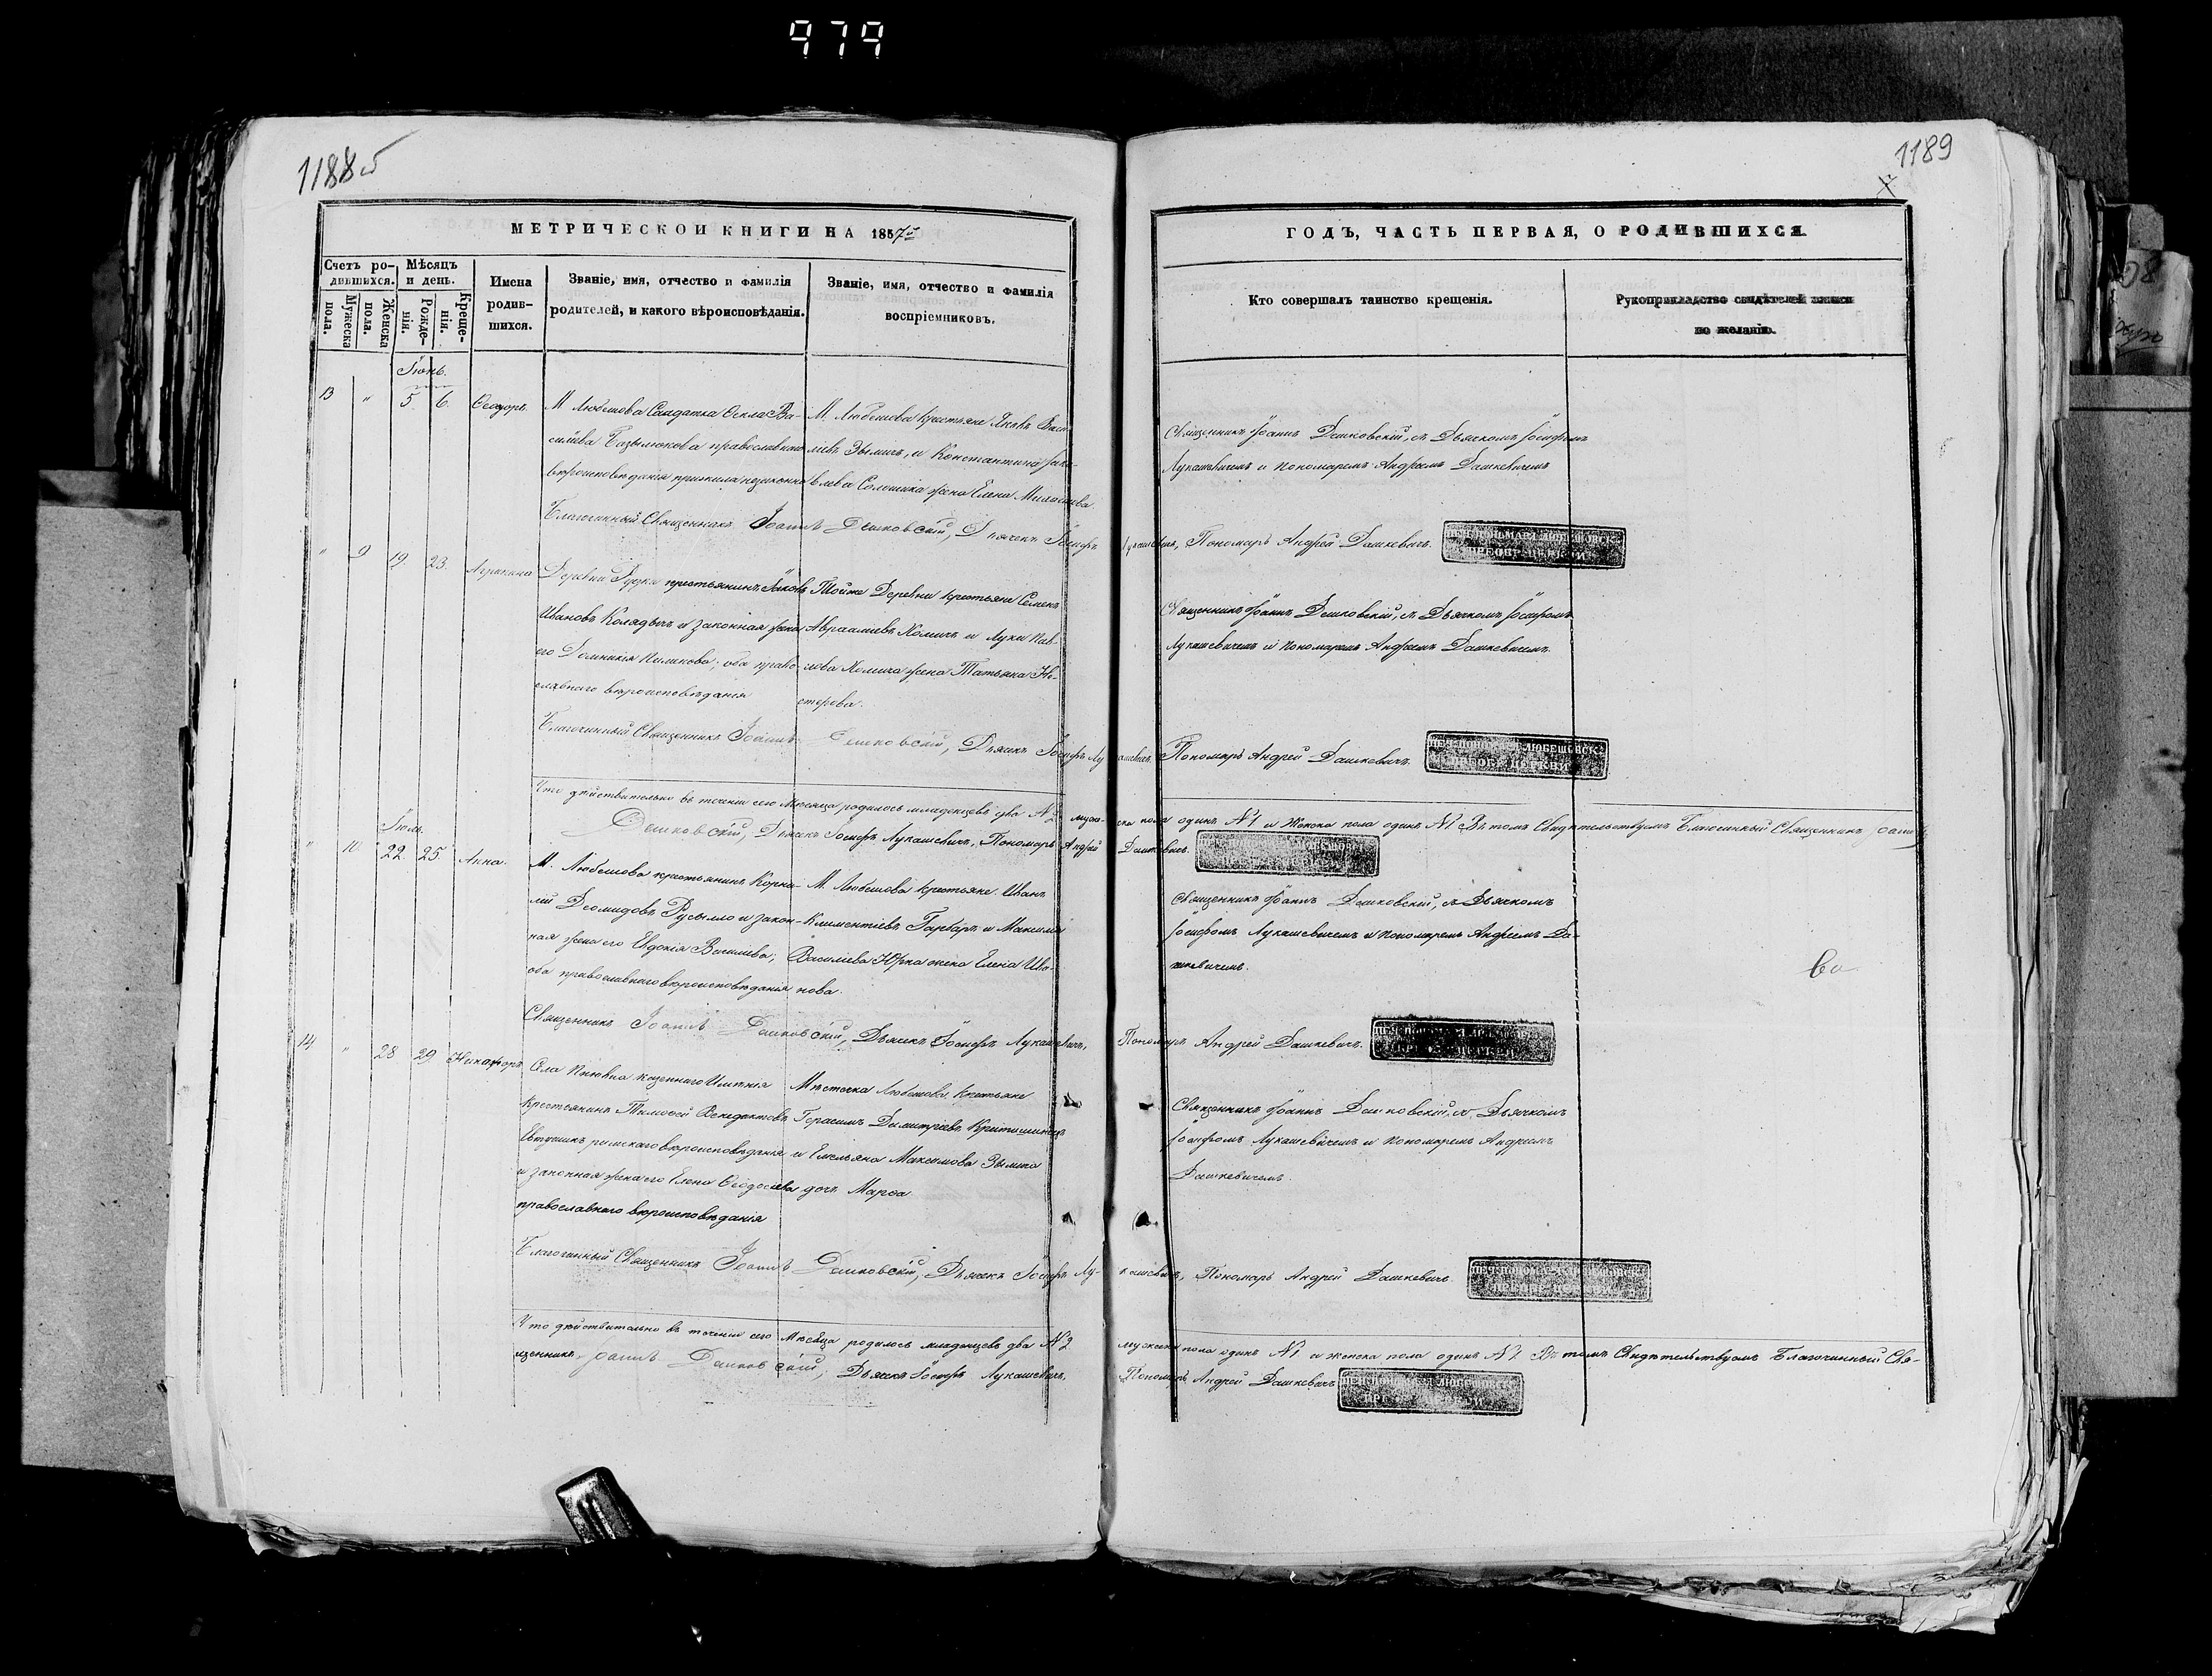 979
1188
1189
МЕТРИЧЕСКОЙ КНИГИ НА 1857й
ГОДЪ, ЧАСТЬ ПЕРВАЯ, О РОДИВШИХСЯ.
Счетъ ро-
дившихся.
Мѣсяцъ
и день.
Мужеска
пола.
Женска
пола.
Рожде-
нія.
Креще-
нія.
Имена
родив-
шихся.
Званіе, имя, отчество и фамилія
родителей, и какого вѣроисповѣданія.
Званіе, имя, отчество и фамилія
воспріемниковъ.
Кто совершалъ таинство крещенія.
Рукоприкладство свидѣтелей записи
по желанію.
Іюнь.
13 " 5. 6. Ѳеодоръ.
М. Любешова Солдатка Ѳекла Ва-
сильева православнаго
вѣроисповѣданія прижила незаконно
М. Любешова Крестьяне Яковъ Васи-
льевъ Зымичъ, и Константина Іако-
влева жена Елена
Священникъ Іоаннъ Дешковскій, съ Дьячкомъ Іосифомъ
Лукашевичемъ и Пономаремъ Андреемъ Дашкевичемъ
Благочинный Священникъ Іоаннъ Дешковскій, Дьячекъ Іосифъ Лукашевичъ, Пономарь Андрей Дашкевичъ.
" 9 19. 23. Акилина
Деревни Рудки крестьянинъ Яковъ
Ивановъ Колядычъ и законная жена
его Домникія; оба право-
славнаго вѣроисповѣданія
Тойже Деревни крестьяне Семенъ
Авраамiевъ Хомичъ и Луки Пав-
лова Хомича жена Татьяна Не-
стерова.
Священникъ Іоаннъ Дешковскій, съ Дьячкомъ Іосифомъ
Лукашевичемъ и Пономаремъ Андреемъ Дашкевичемъ.
Благочинный Священникъ Іоаннъ Дешковскій, Дьячекъ Іосифъ Лукашевичъ, Пономарь Андрей Дашкевичъ.
Что дѣйствительно въ теченіи сего Мѣсяца родилось младенцевъ два №2 мужеска пола одинъ №1 и женска пола одинъ №1 Въ томъ Свидѣтельствуемъ Благочинный Священникъ Іоаннъ
Дешковскій, Дьячекъ Іосифъ Лукашевичъ, Пономарь Андрей Дашкевичъ.
Іюль.
" 10 22. 25. Анна.
М. Любешова крестьянинъ Корни-
лій Деомидовъ Русылло и закон-
ная жена его Евдокія Васильева;
оба православнаго вѣроисповѣданія
М. Любешова крестьяне Иванъ
Климентіевъ Гарбаръ и Максима
Васильева Юрка жена Елена Ива-
нова.
Священникъ Іоаннъ Дешковскій, съ Дьячкомъ
Іосифомъ Лукашевичемъ и Пономаремъ Андреемъ Да-
шкевичемъ.
Священникъ Іоаннъ Дешковскій, Дьячекъ Іосифъ Лукашевичъ, Пономарь Андрей Дашкевичъ.
14 " 28 29 Никифоръ
Села казеннаго Имѣнія
Крестьянинъ Тимофей Венедиктовъ
Евтушикъ римскаго вѣроисповѣданія
и законная жена его Елена Ѳеодосіева
православнаго вѣроисповѣданія
Мѣстечка Любешова Крестьяне
Герасимъ Дымитріевъ
и Емельяна Максимова Зымича
дочь Марѳа
Священникъ Іоаннъ Дешковскій, съ Дьячкомъ
Іосифомъ Лукашевичемъ и Пономаремъ Андреемъ
Дашкевичемъ.
Благочинный Священникъ Іоаннъ Дешковскій, Дьячекъ Іосифъ Лукашевичъ, Пономарь Андрей Дашкевичъ.
Что дѣйствительно въ теченіи сего Мѣсяца родилось младенцевъ два №2 мужеска пола одинъ №1 и женска пола одинъ №1 Въ томъ Свидѣтельствуемъ Благочинный Свя-
щенникъ Іоаннъ Дешковскій, Дьячекъ Іосифъ Лукашевичъ, Пономарь Андрей Дашкевичъ